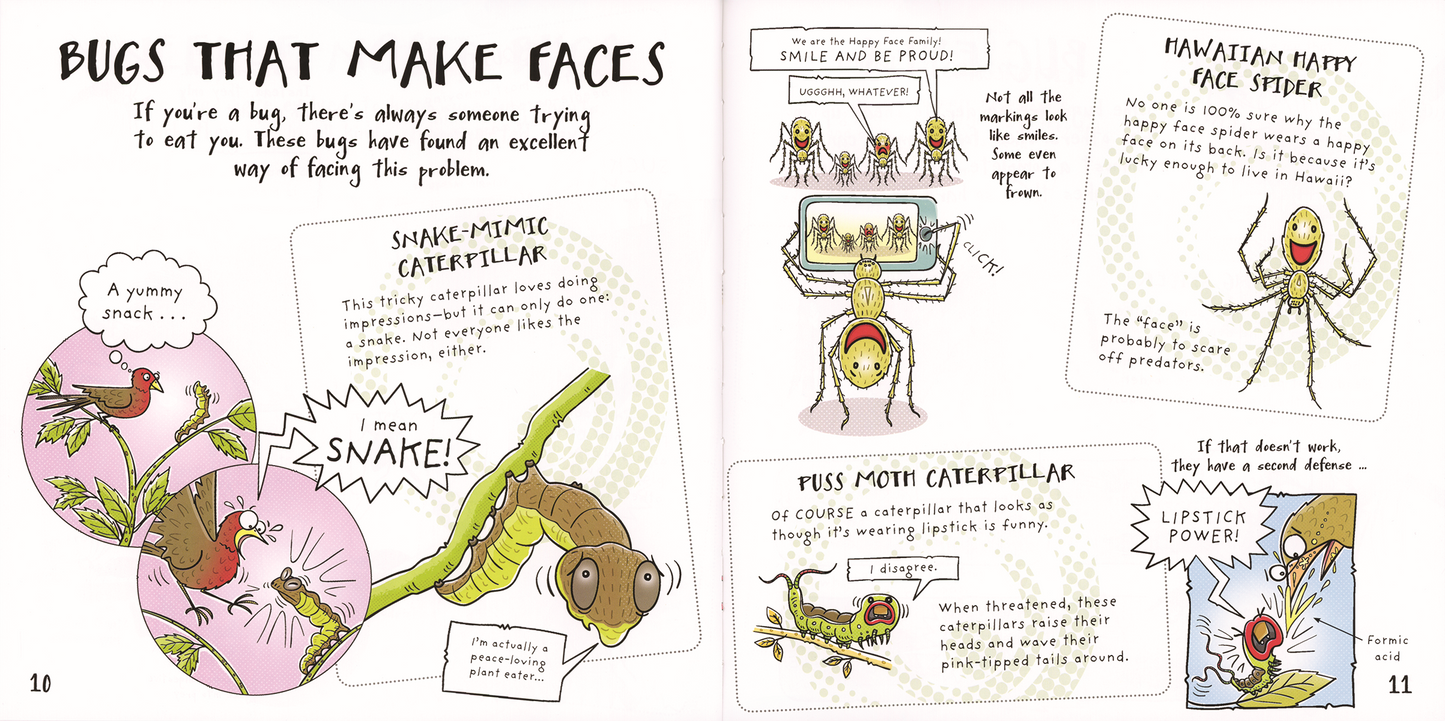 BUGS THAT MAKE FACES
If you're a bug, there's always someone trying
to eat you. These bugs have found an excellent
way of facing this problem.
SNAKE-MIMIC
CATERPILLAR
This tricky caterpillar loves doing
impressions—but it can only do one:
a snake. Not everyone likes the
impression, either.
A yummy
snack . . .
I mean
SNAKE!
I'm actually a
peace-loving
plant eater...
10
We are the Happy Face Family!
SMILE AND BE PROUD!
UGGGHH, WHATEVER!
Not all the
markings look
like smiles.
Some even
appear to
frown.
CLICK!
HAWAIIAN HAPPY
FACE SPIDER
No one is 100% sure why the
happy face spider wears a happy
face on its back. Is it because it's
lucky enough to live in Hawaii?
The "face" is
probably to scare
off predators.
PUSS MOTH CATERPILLAR
Of COURSE a caterpillar that looks as
though it's wearing lipstick is funny.
I disagree.
When threatened, these
caterpillars raise their
heads and wave their
pink-tipped tails around.
If that doesn't work,
they have a second defense ...
LIPSTICK
POWER!
Formic
acid
11